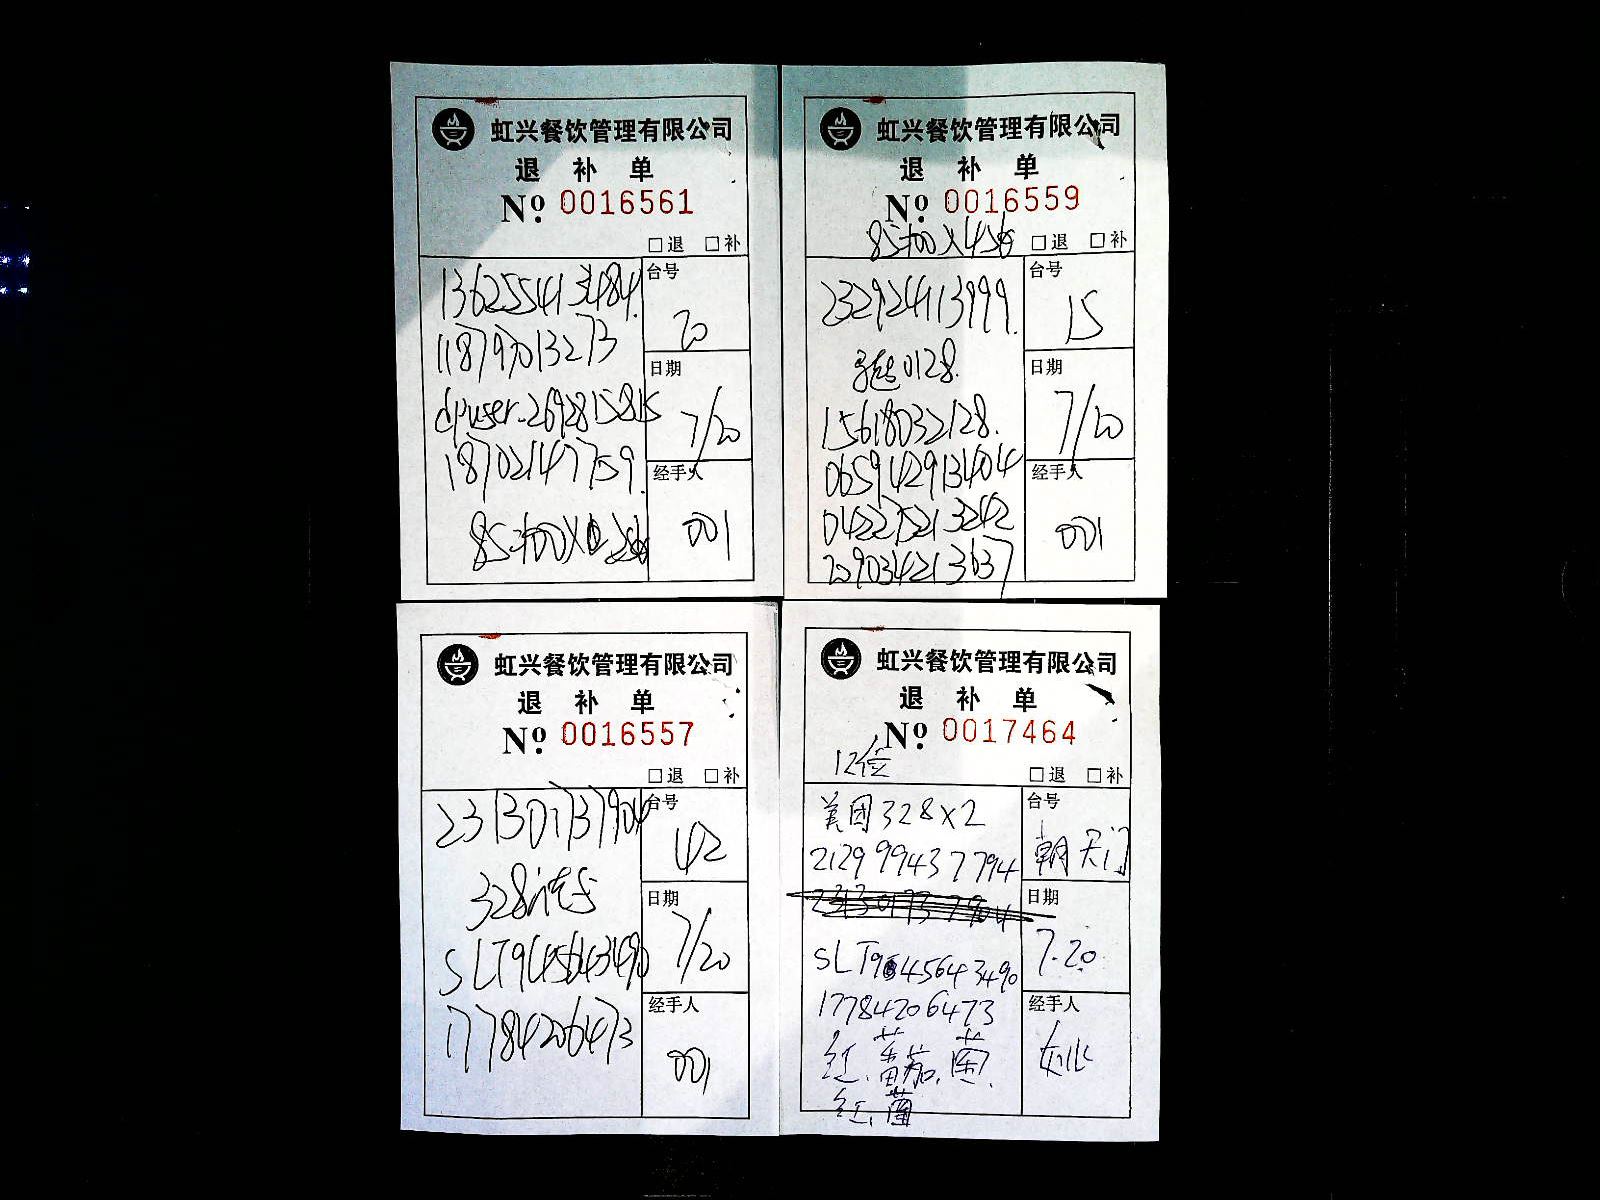 虹兴餐饮管理有限公司
退 补 单
No. 0016561
□退 □补
136255413484.
11879013273
dpuser-2692815815
18702147759.
台号
20
日期
7/20
经手人
001
虹兴餐饮管理有限公司
退 补 单
No. 0016559
□退 □补
232924113999.
0128.
15618032128.
065942913404
042275213242
209034213637
台号
15
日期
7/20
经手人
001
虹兴餐饮管理有限公司
退 补 单
No. 0016557
□退 □补
231301737904
328
SLT9645643490
17784206473
台号
42
日期
7/20
经手人
001
虹兴餐饮管理有限公司
退 补 单
No. 0017464
12位
□退 □补
美团328×2
212999437794
231301737904
17784206473
红.蕃茄.菌.
红.菌
台号
朝天门
日期
7.20
经手人